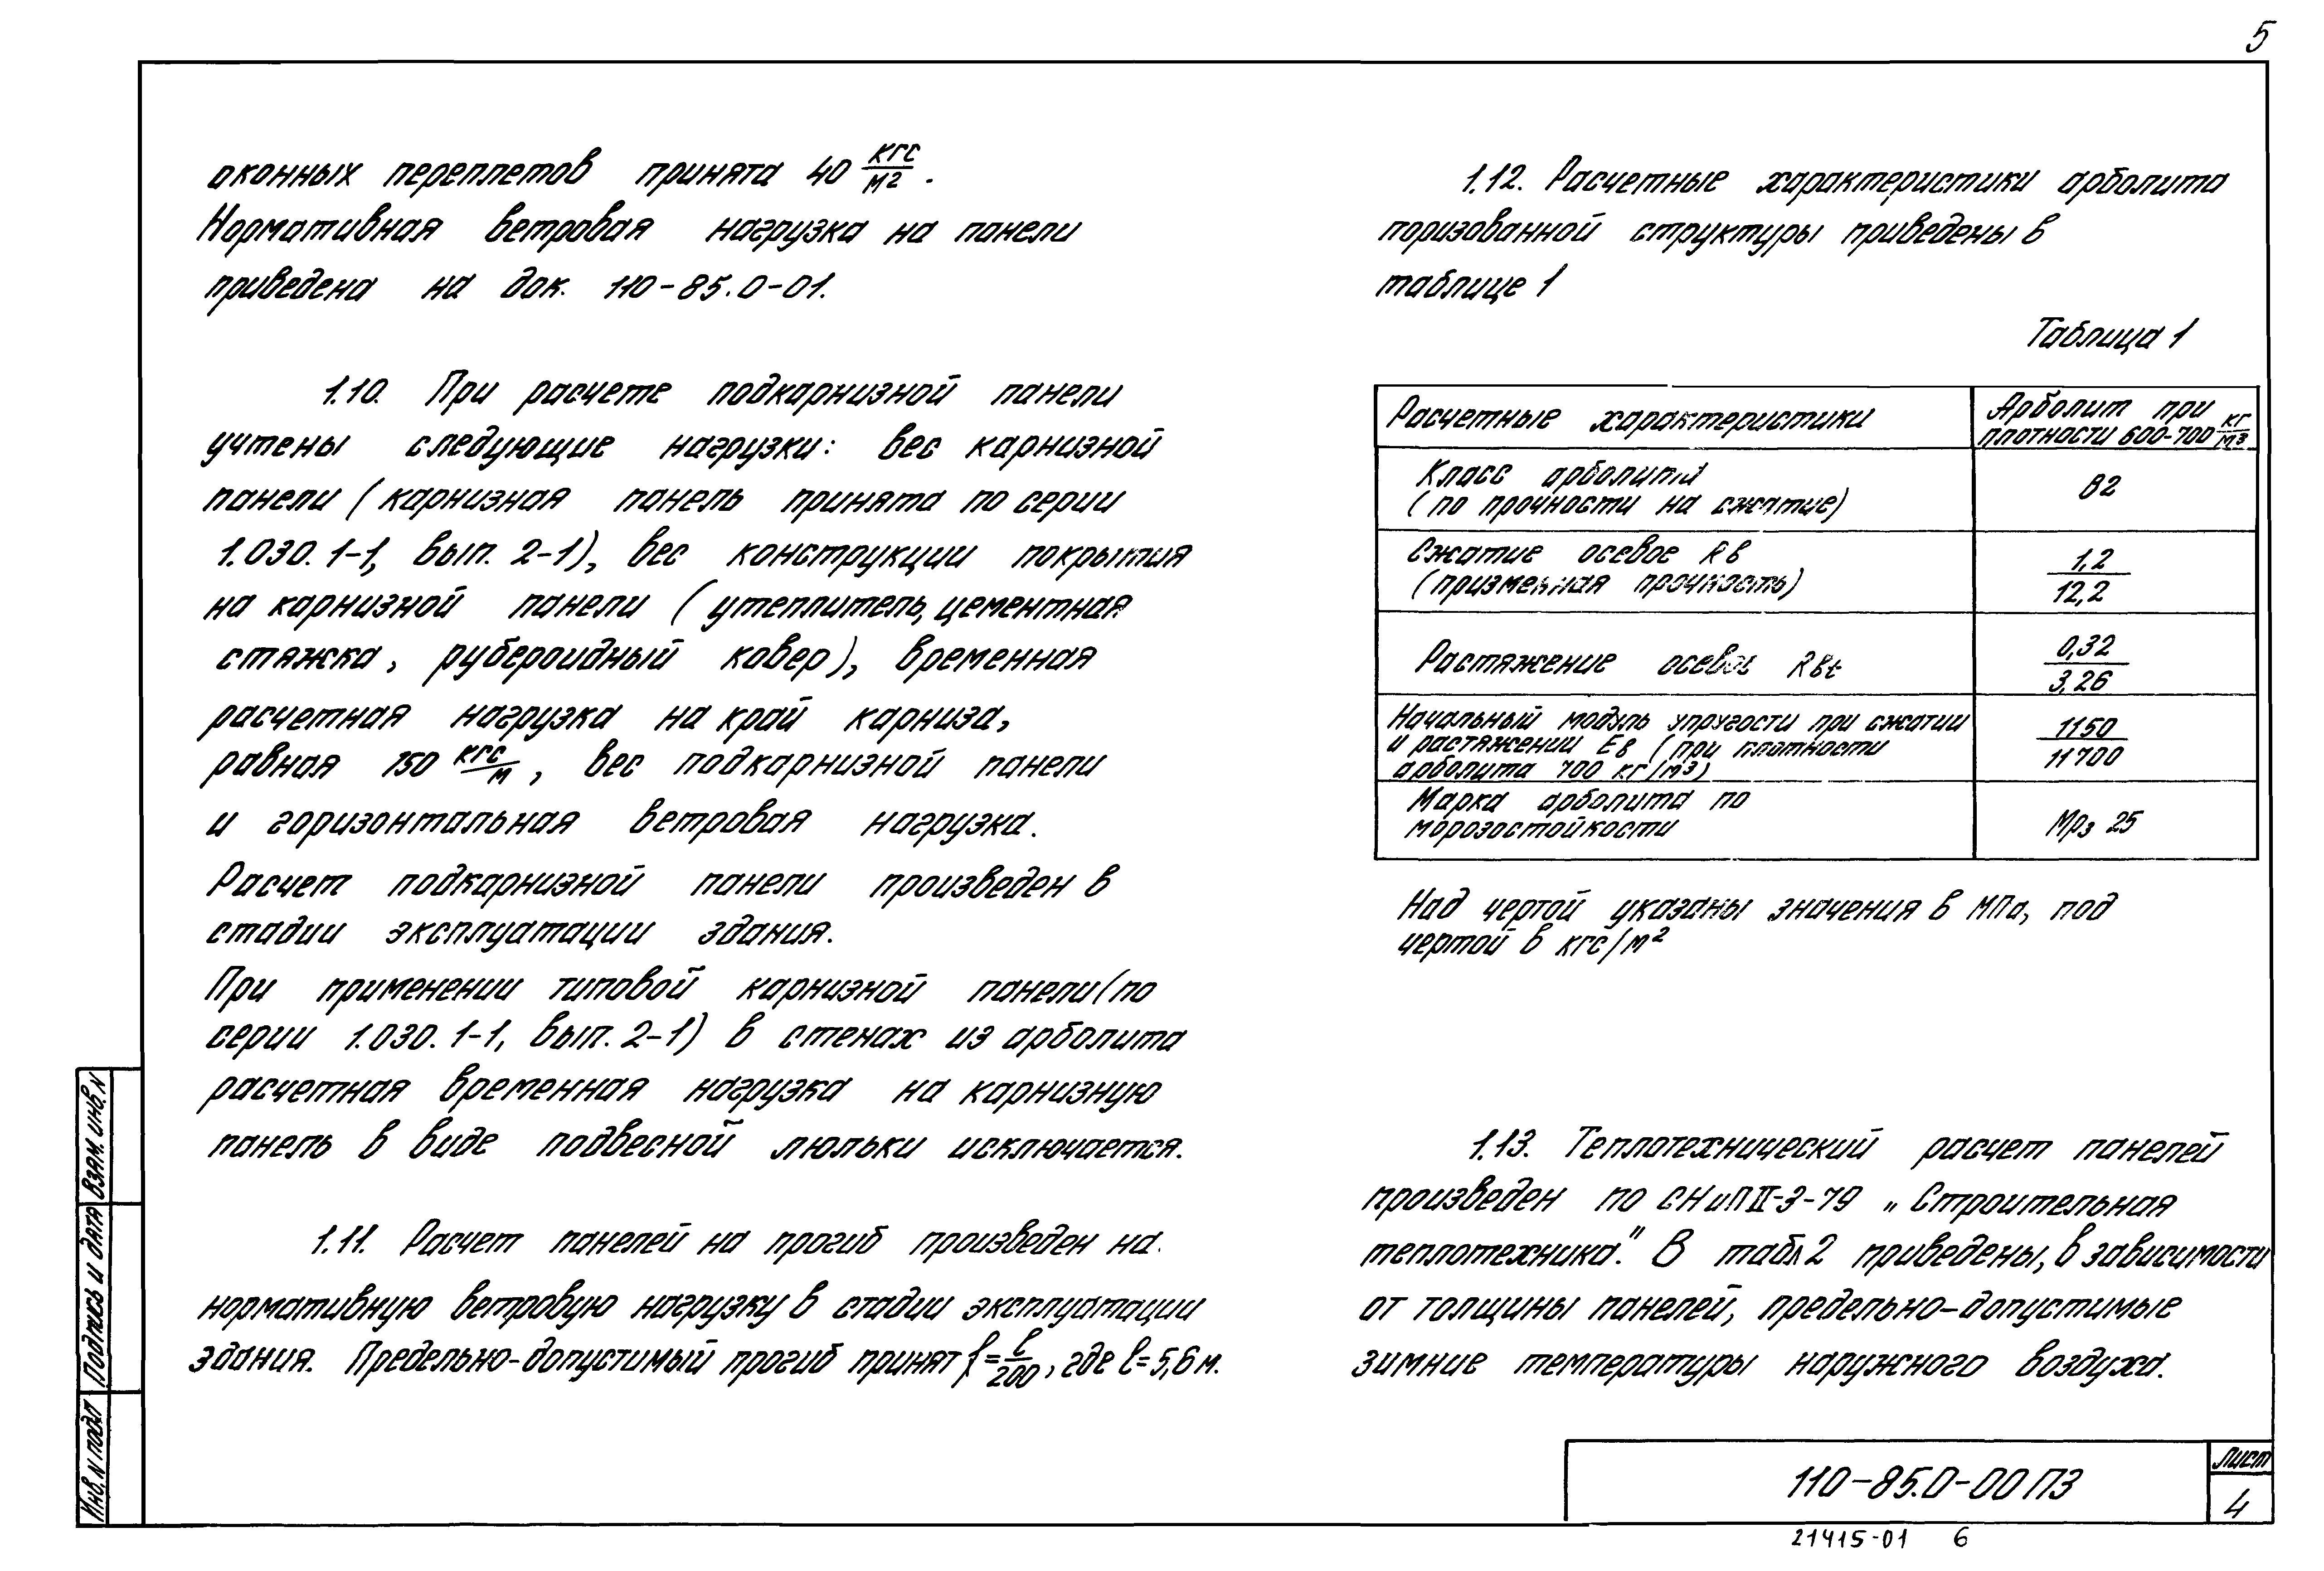 5
оконных переплетов принята 40 кгс/м2.
Нормативная ветровая нагрузка на панели
приведена на док. 110-85.0-01.
1.10. При расчете подкарнизной панели
учтены следующие нагрузки: вес карнизной
панели (карнизная панель принята по серии
1.030.1-1, вып. 2-1), вес конструкции покрытия
на карнизной панели (утеплитель, цементная
стяжка, рубероидный ковер), временная
расчетная нагрузка на край карниза,
равная 150 кгс/м, вес подкарнизной панели
и горизонтальная ветровая нагрузка.
Расчет подкарнизной панели произведен в
стадии эксплуатации здания.
При применении типовой карнизной панели (по
серии 1.030.1-1, вып. 2-1) в стенах из арболита
расчетная временная нагрузка на карнизную
панель в виде подвесной люльки исключается.
1.11. Расчет панелей на прогиб произведен на
нормативную ветровую нагрузку в стадии эксплуатации
здания. Предельно-допустимый прогиб принят f=l/200, где l=5,6 м.
1.12. Расчетные характеристики арболита
поризованной структуры приведены в
таблице 1
Таблица 1
Расчетные характеристики
Арболит при
плотности 600-700 кг/м3
Класс арболита
(по прочности на сжатие)
В2
Сжатие осевое Rв
(призменная прочность)
1,2
12,2
Растяжение осевое Rвt
0,32
3,26
Начальный модуль упругости при сжатии
и растяжении Ев (при плотности
арболита 700 кг/м3)
1150
11700
Марка арболита по
морозостойкости
Мрз 25
Над чертой указаны значения в МПа, под
чертой в кгс/м2
1.13. Теплотехнический расчет панелей
произведен по СНиП II-3-79 „Строительная
теплотехника." В табл 2 приведены, в зависимости
от толщины панелей, предельно-допустимые
зимние температуры наружного воздуха.
Инв. N подл
Подпись и дата
Взам. инв. N
110-85.0-00 ПЗ
Лист
4
21415-01 6